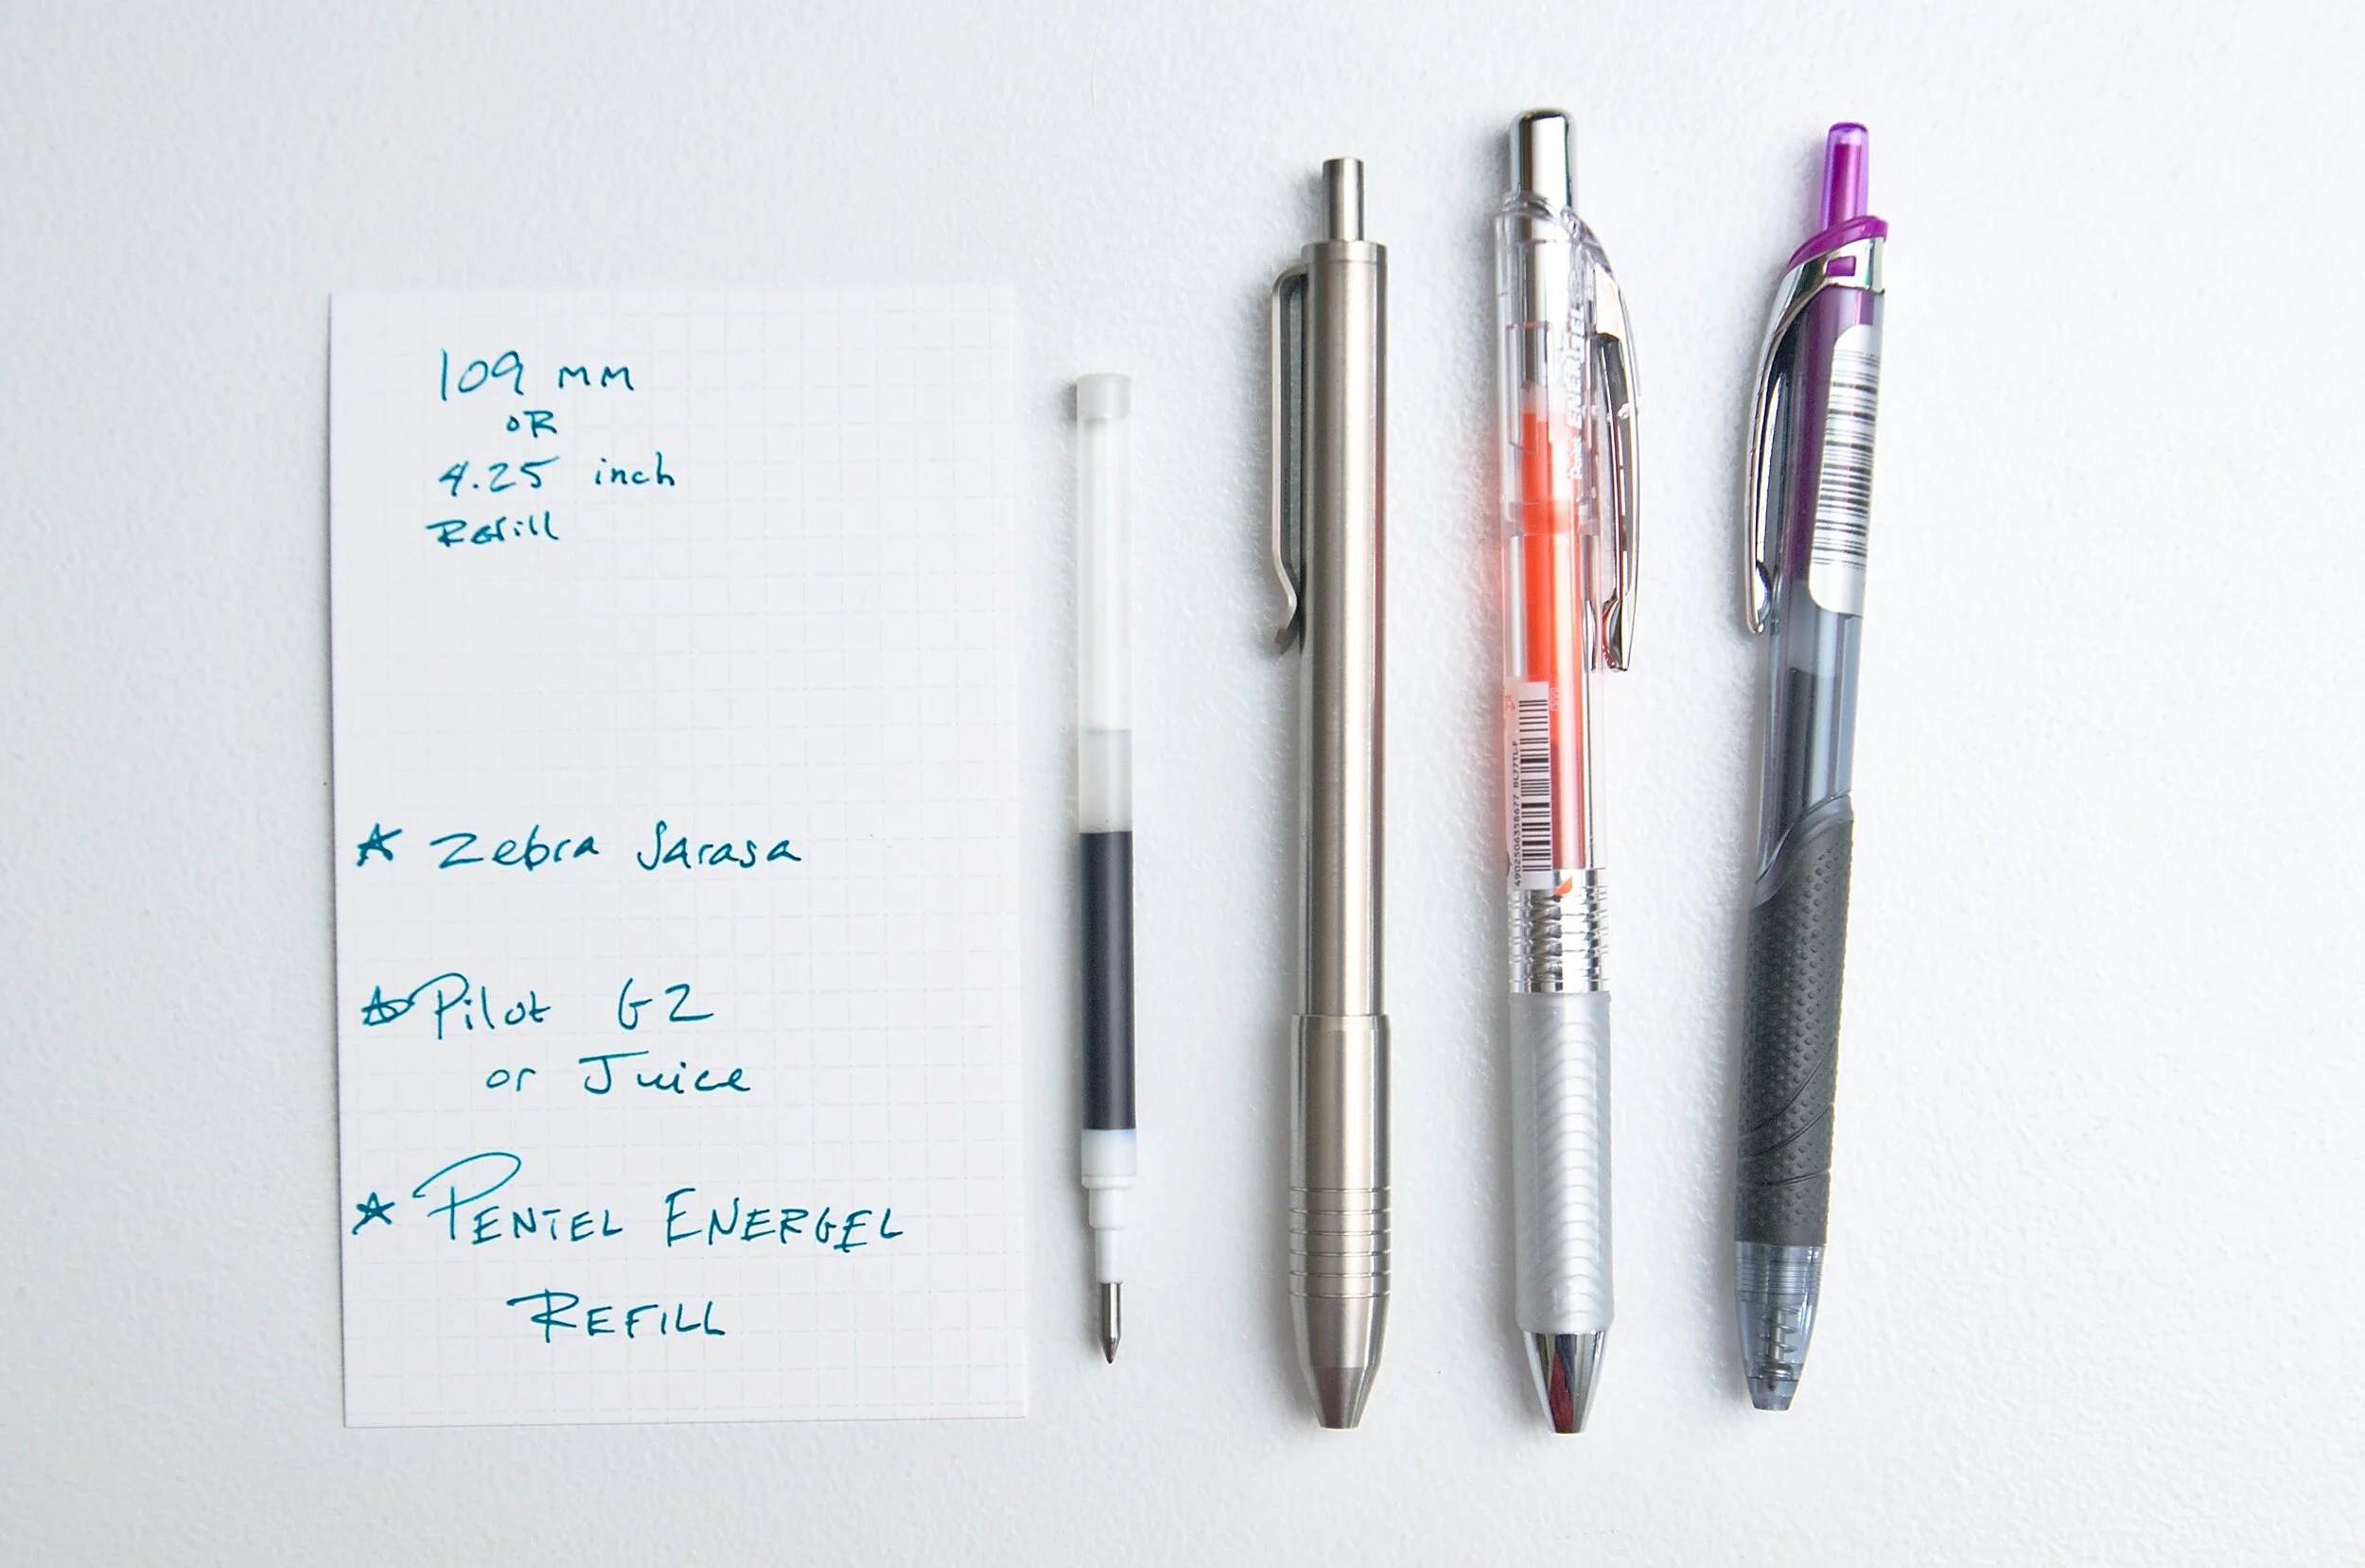 109 mm
OR
4.25 inch
Refill
☆ Zebra Sarasa
☆ Pilot G2
or Juice
☆ PENTEL ENERGEL
REFILL
ENERGEL
4902506358677 BL77TL-F